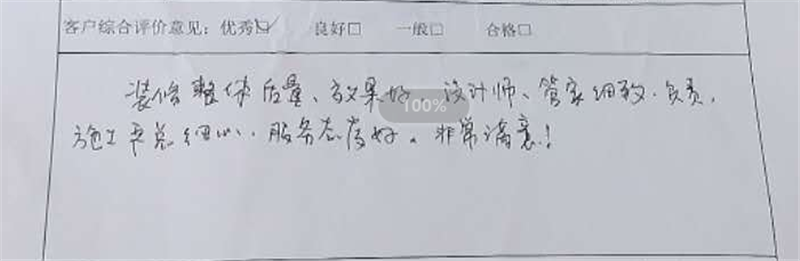 客户综合评价意见：优秀☑ 良好□ 一般□ 合格□
装修整体质量、效果好 设计师、管家细致.负责,
施工 细心.服务态度好。非常满意！
100%